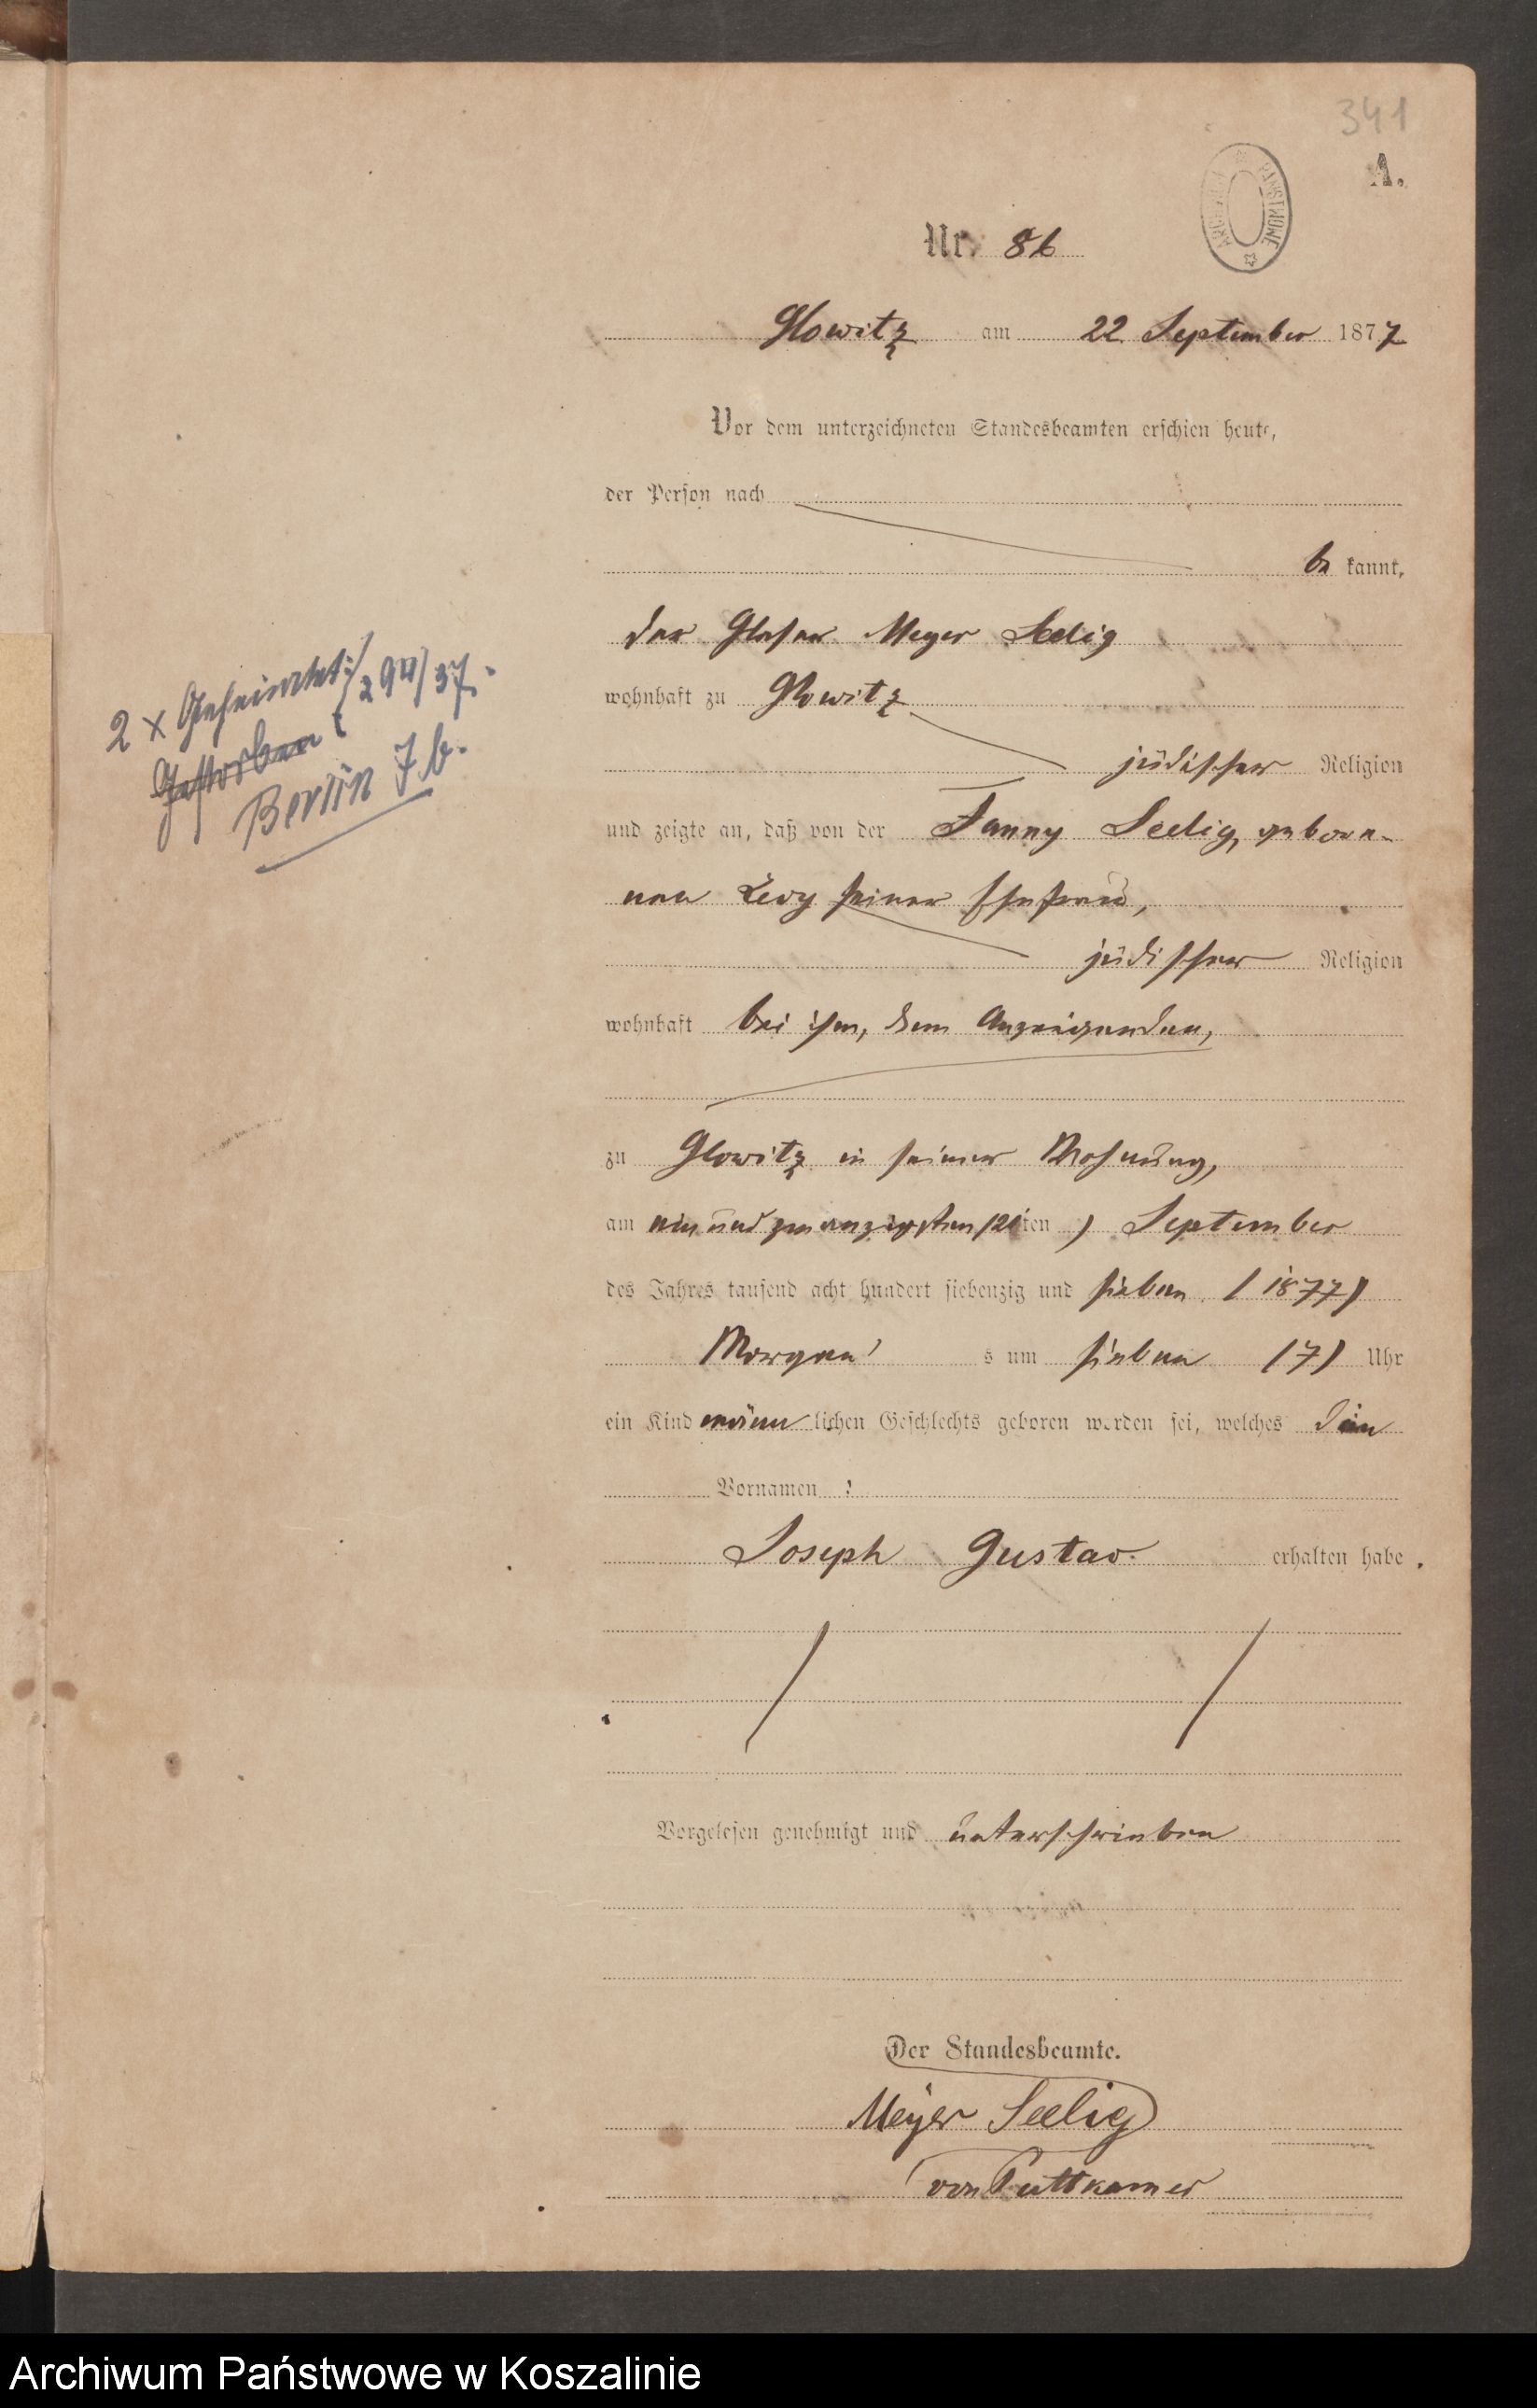 341
A.
ARCHIWUM PAŃSTWOWE
Nr. 86
Glowitz am 22 September 1877
Vor dem unterzeichneten Standesbeamten erschien heute,
der Person nach
be kannt,
der Glaser Meyer Seelig
wohnhaft zu Glowitz
jüdischer Religion
und zeigte an, daß von der Fanny Seelig, gebore-
nen Levy seiner Ehefrau,
jüdischer Religion
wohnhaft bei ihm, dem Anzeigenden,
zu Glowitz in seiner Wohnung,
am ein und zwanzigsten (21ten) September
des Jahres tausend acht hundert siebenzig und sieben (1877)
Morgen s um sieben (7) Uhr
ein Kind männ lichen Geschlechts geboren worden sei, welches die
Vornamen :
Joseph Gustav. erhalten habe.
Vorgelesen genehmigt und unterschrieben
Der Standesbeamte.
Meyer Seelig
von Puttkamer
2 x Geheiratet: 294/37.
Gestorben
Berlin 7b.
Archiwum Państwowe w Koszalinie